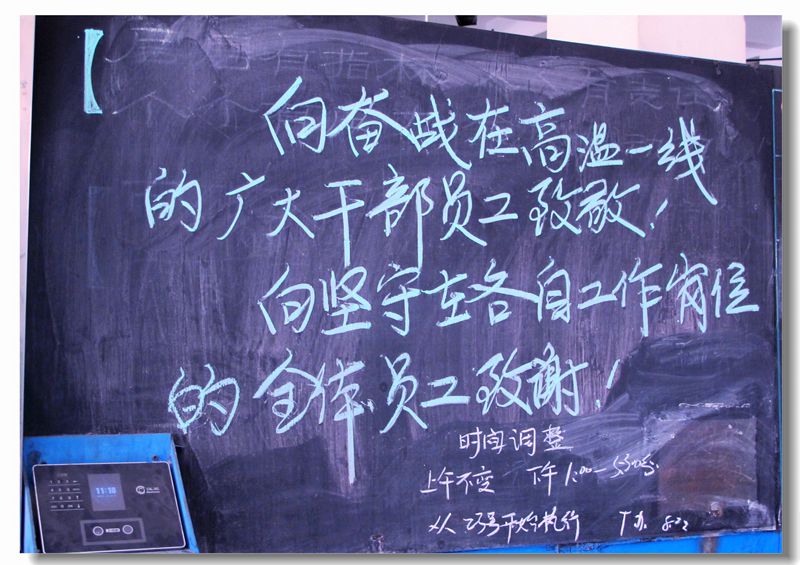 向奋战在高温一线
的广大干部员工致敬！
向坚守在各自工作岗位
的全体员工致谢！
时间调整
上午不变 下午1:00—5:30
从23号开始执行 厂办 8.22
11:18